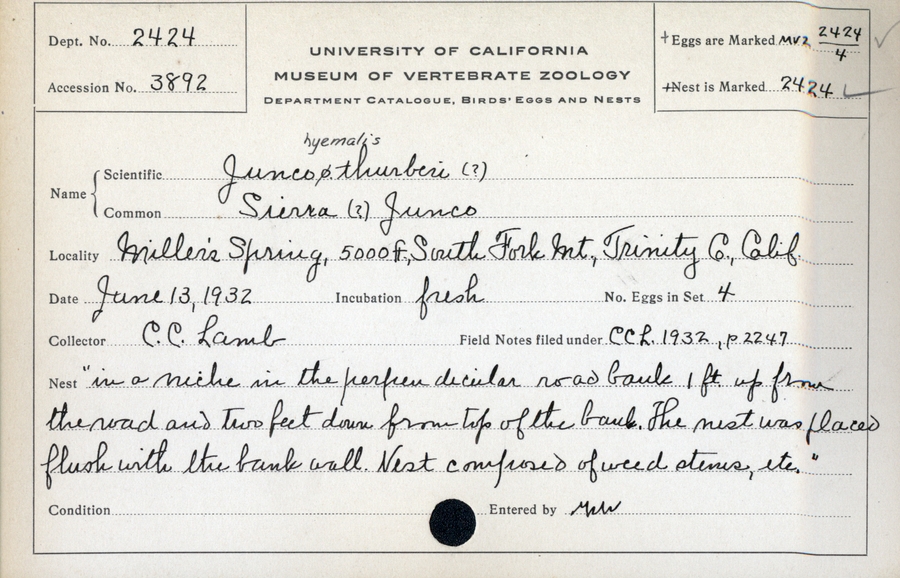 Dept. No. 2424
Accession No. 3892
UNIVERSITY OF CALIFORNIA
MUSEUM OF VERTEBRATE ZOOLOGY
DEPARTMENT CATALOGUE, BIRDS' EGGS AND NESTS
+Eggs are Marked MVZ 2424/4 ✓
+Nest is Marked 2424 ✓
hyemalis
Name { Scientific Junco thurberi (?)
Common Sierra (?) Junco
Locality Miller's Spring, 5000 ft, South Fork Mt., Trinity Co., Calif.
Date June 13, 1932 Incubation fresh No. Eggs in Set 4
Collector C.C. Lamb Field Notes filed under CCL. 1932, p 2247
Nest "in a niche in the perpendicular road bank 1 ft up from
the road and two feet down from top of the bank. The nest was placed
flush with the bank wall. Nest composed of weed stems, etc."
Condition Entered by